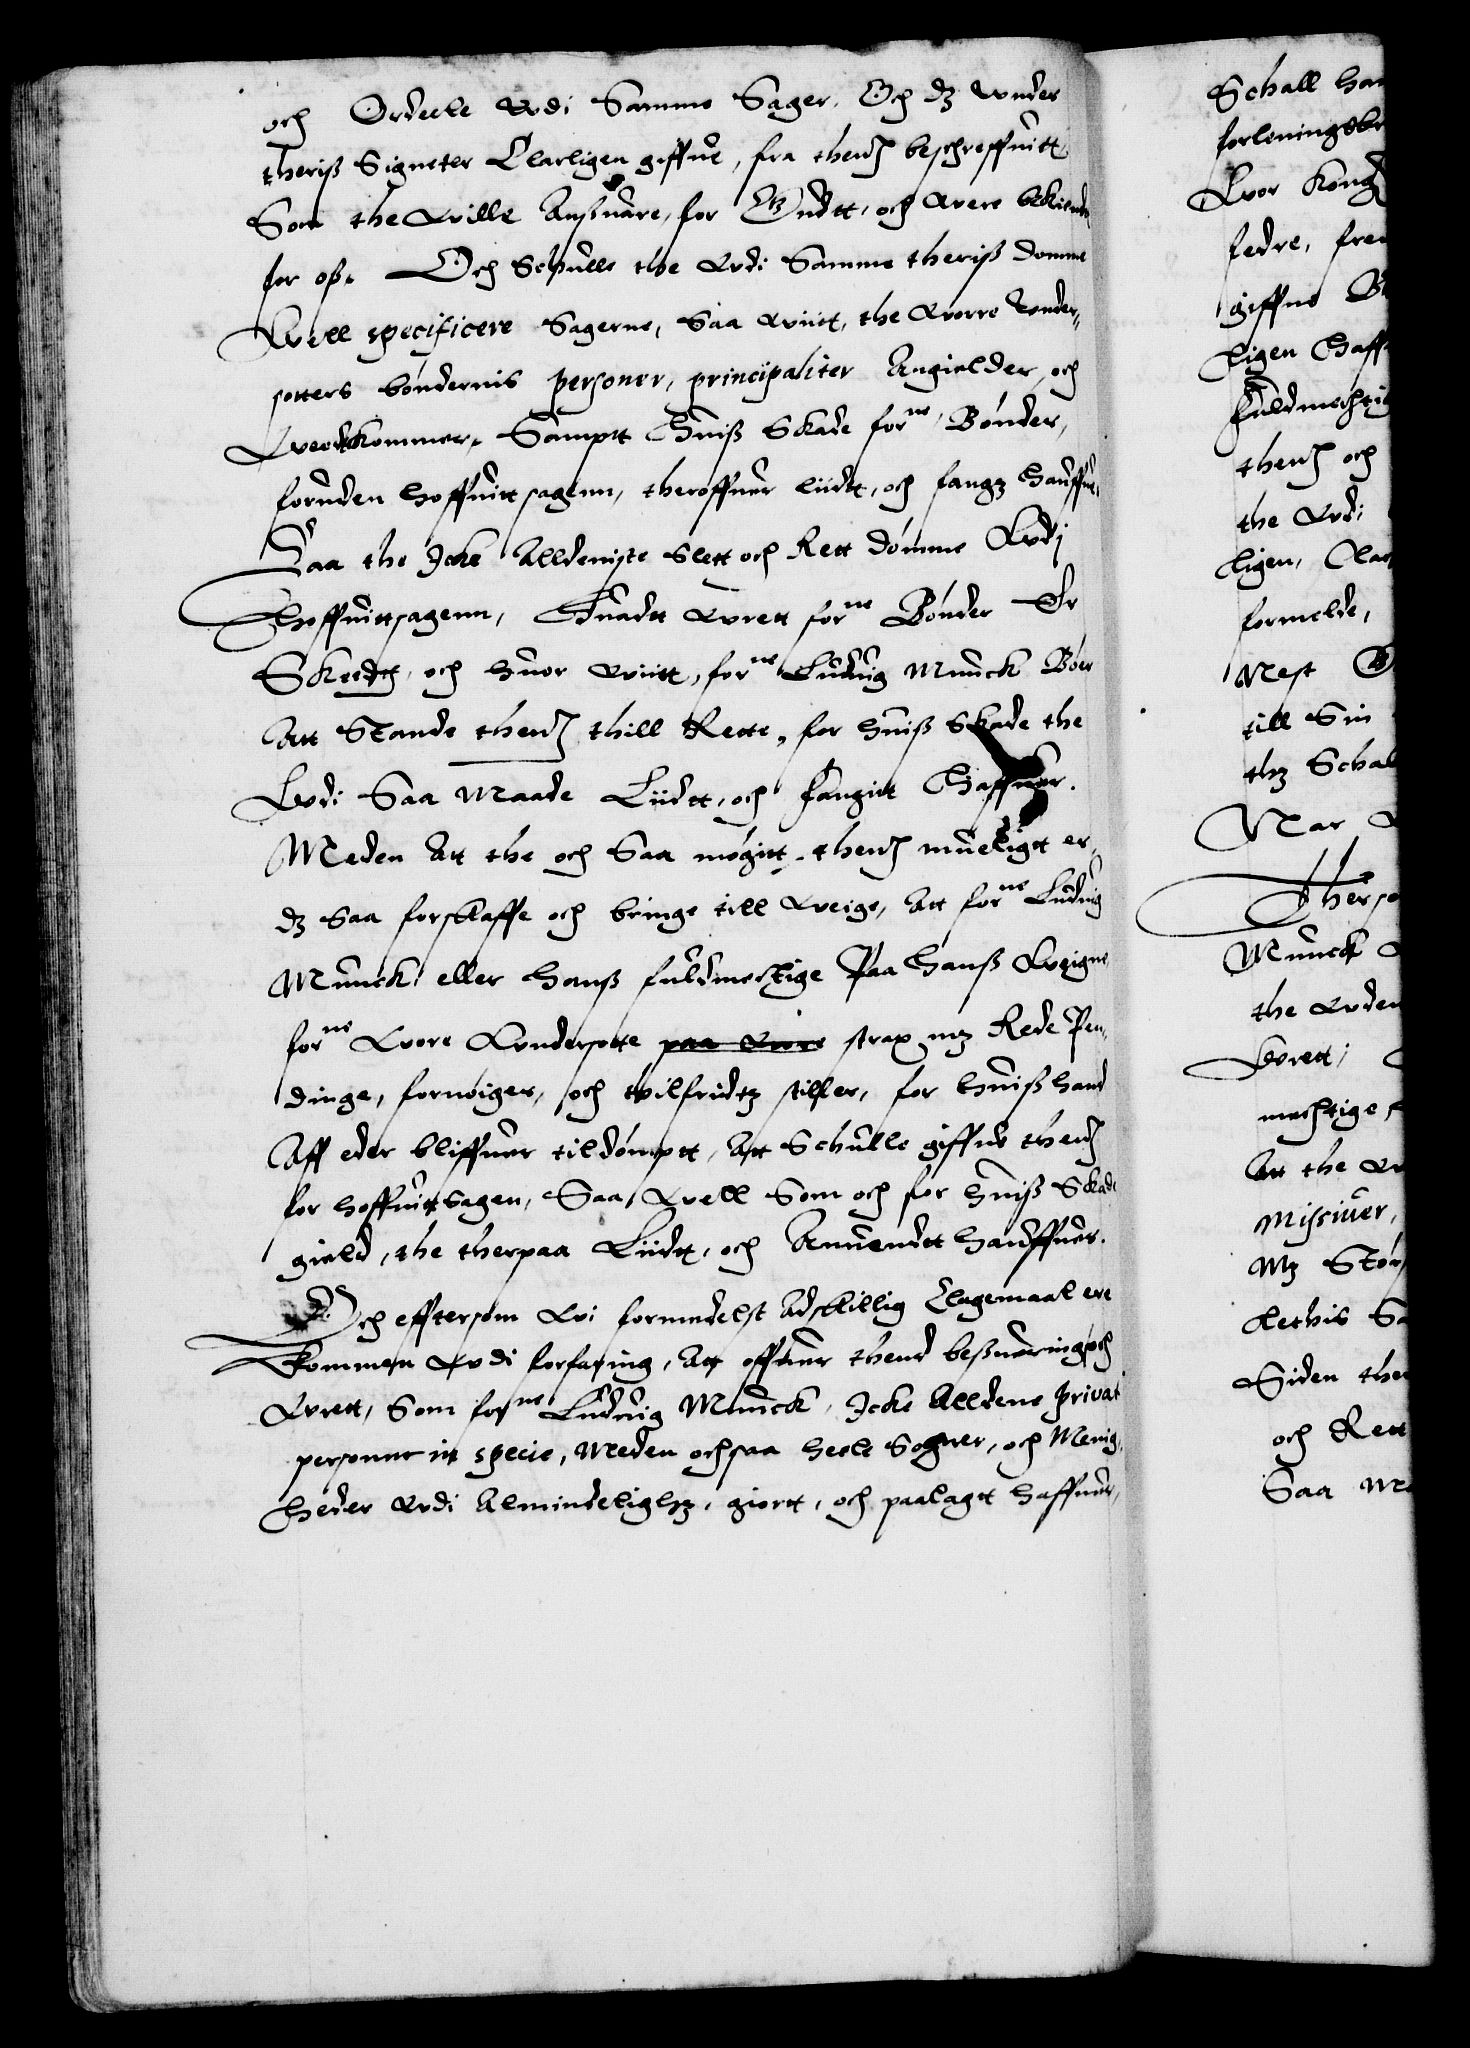 och Ordeele Udi Samme Sager. Och dz under
theris Signeter Clarligen giffue, fra thend beschreffuitt
Som the Wille Ansuare, for Gudtt, och were bekiendt
for os. Och Schulle the Udi Samme theris domme
Well specificere Sagerne, Saa Wiitt, the Worre Under„
sotters böndernis personer, principaliter Angielder, och
Wedkommer. Sampt Huis Skade forne Bönder,
foruden hoffuittsagenn, theroffuer liidtt, och fangz hauffuer,
Saa the Icke Alldeniste Slett och Rett dömme Udj
Hoffuittsagenn, Huadtt Urett forne Bönder Er
Skeedtt, och huor Wiitt, forne Ludwig Munck Böer
Att Stande thend thill Rette, for huis Skade the
Udi Saa Maade Liidtt, och fangitt Haffuer.
Meden Att the och Saa mögitt thend mueligtt er,
dz Saa forskaffe och bringe till Weige, Att forne Ludwig
Munck eller hans fuldmechtige Paa hans Weigne
forne Wore Undersotte strax mz Rede Pen„
dinge, fornöiger, och tilfridtz stiller, for huis hand
Aff eder bliffuer tildömptt, Att Schulle giffue thend
for hoffuittsagen, Saa Well Som och for huis Skade
gield, the therpaa Liidtt, och Anuendtt hauffuer.
Och efftersom Wi formedelst Adskillig Clagemaal ere
Kommen Udi forfaring, Att offuer thend besuering och
Urett, Som forne Ludwig Munck, Icke Alldene privat
personer in specie, Meden ochsaa heele Sogner, och Menig„
heder Udi Almindelighz, giortt, och paalagtt haffuer,
Schall
forleningsbr
Wor Kong
fedre, fre
giffue
ligen Haff
fuldmechtig
thend och
the Udi
ligen, Clar
formelde,
Nest
till Sin
thz Schal
Nar
Therso
Munck
the Uden
Worett,
mechtige
Att the
Missiver,
Mz Stör
Siden the
och Rett
Saa